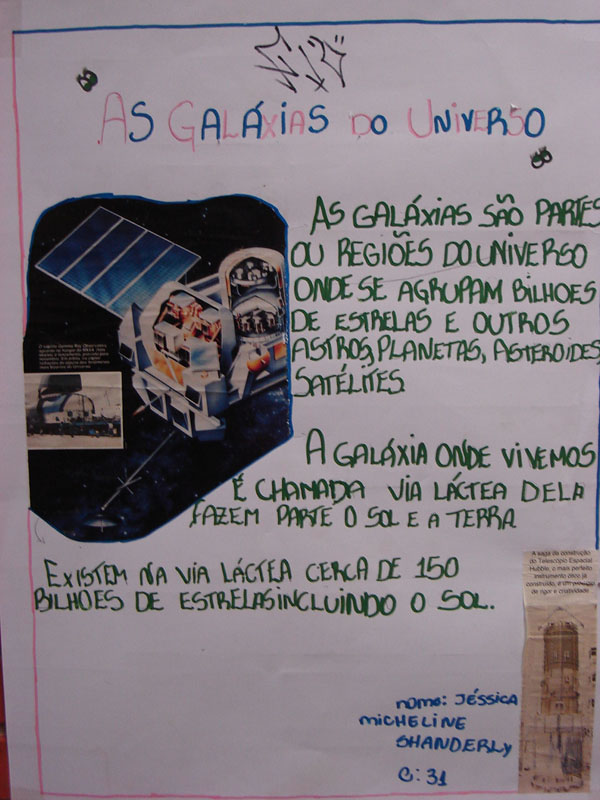 AS GALÁXIAS DO UNIVERSO
AS GALÁXIAS SÃO PARTES
OU REGIÕES DO UNIVERSO
ONDE SE AGRUPAM BILHOES
DE ESTRELAS E OUTROS
ASTROS, PLANETAS, ASTEROIDES,
SATÉLITES.
A GALÁXIA ONDE VIVEMOS
É CHAMADA VIA LÁCTEA DELA
FAZEM PARTE O SOL E A TERRA
EXISTEM NA VIA LÁCTEA CERCA DE 150
BILHOES DE ESTRELAS INCLUINDO O SOL.
A saga da construção
do Telescópio Espacial
Hubble, o mais perfeito
instrumento ótico já
construído, é um
de rigor e criatividade
nome: JÉSSICA
MICHELINE
SHANDERLY
C: 31